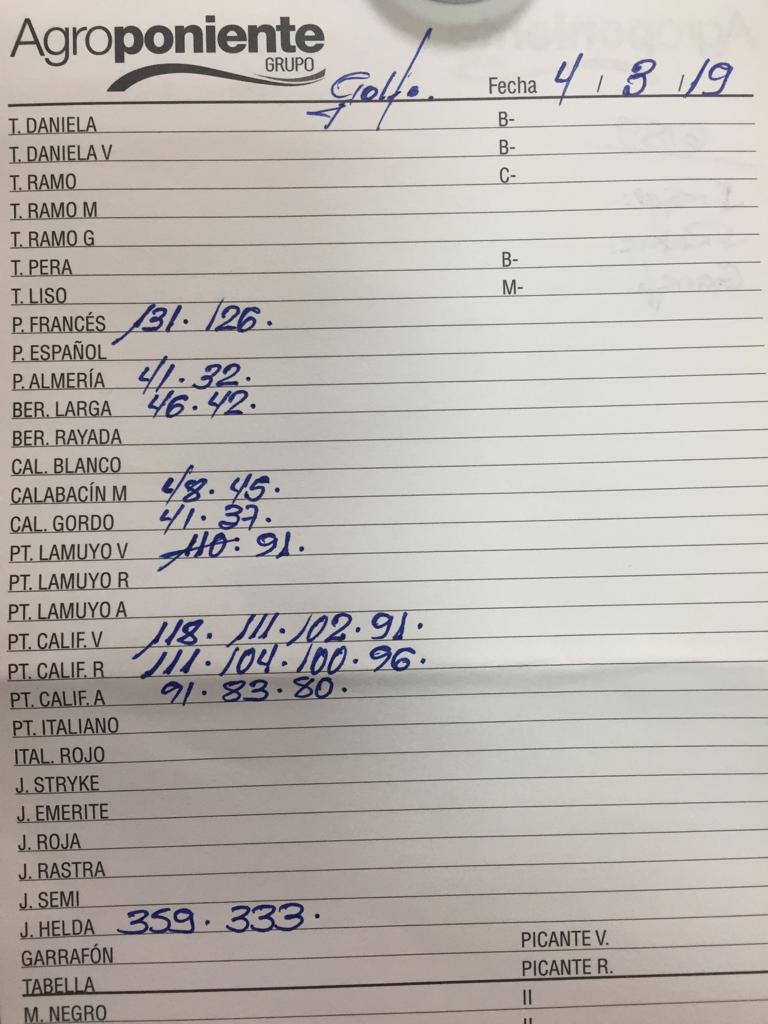 Agroponiente
GRUPO
Golfo. Fecha 4 / 3 / 19
T. DANIELA B-
T. DANIELA V B-
T. RAMO C-
T. RAMO M
T. RAMO G
T. PERA B-
T. LISO M-
P. FRANCÉS 131. 126.
P. ESPAÑOL
P. ALMERÍA 41. 32.
BER. LARGA 46. 42.
BER. RAYADA
CAL. BLANCO
CALABACÍN M 48. 45.
CAL. GORDO 41. 37.
PT. LAMUYO V 110. 91.
PT. LAMUYO R
PT. LAMUYO A
PT. CALIF. V 118. 111. 102. 91.
PT. CALIF. R 111. 104. 100. 96.
PT. CALIF. A 91. 83. 80.
PT. ITALIANO
ITAL. ROJO
J. STRYKE
J. EMERITE
J. ROJA
J. RASTRA
J. SEMI
J. HELDA 359. 333.
GARRAFÓN PICANTE V.
TABELLA PICANTE R.
M. NEGRO II